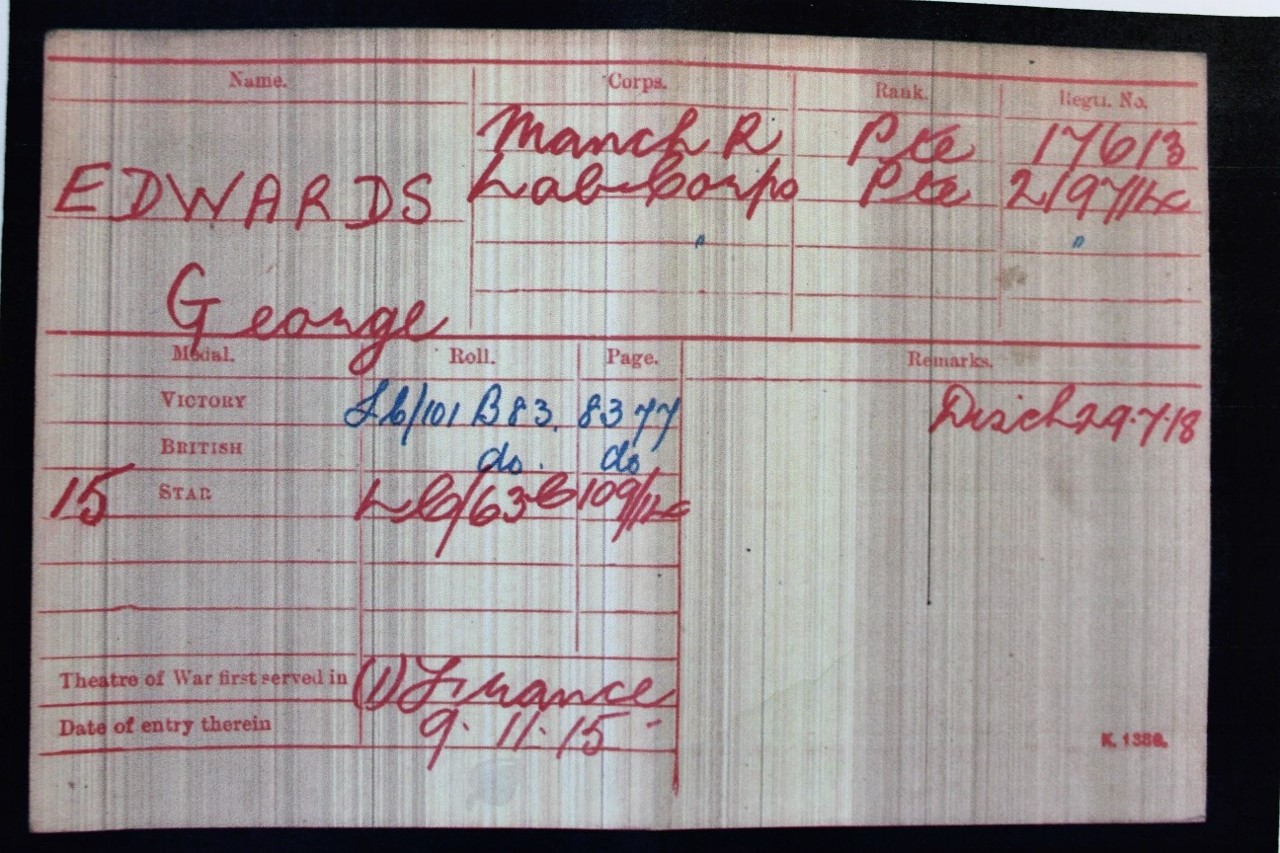 Name. Corps. Rank. Regtl. No.
Manch R Pte 17613
EDWARDS Lab Corps Pte
" "
George
Medal. Roll. Page. Remarks.
VICTORY Lb/101 B 83. 8377 Disch 29.7.18
BRITISH do. do
15 STAR
Theatre of War first served in (1) France
Date of entry therein 9.11.15
K. 1380.